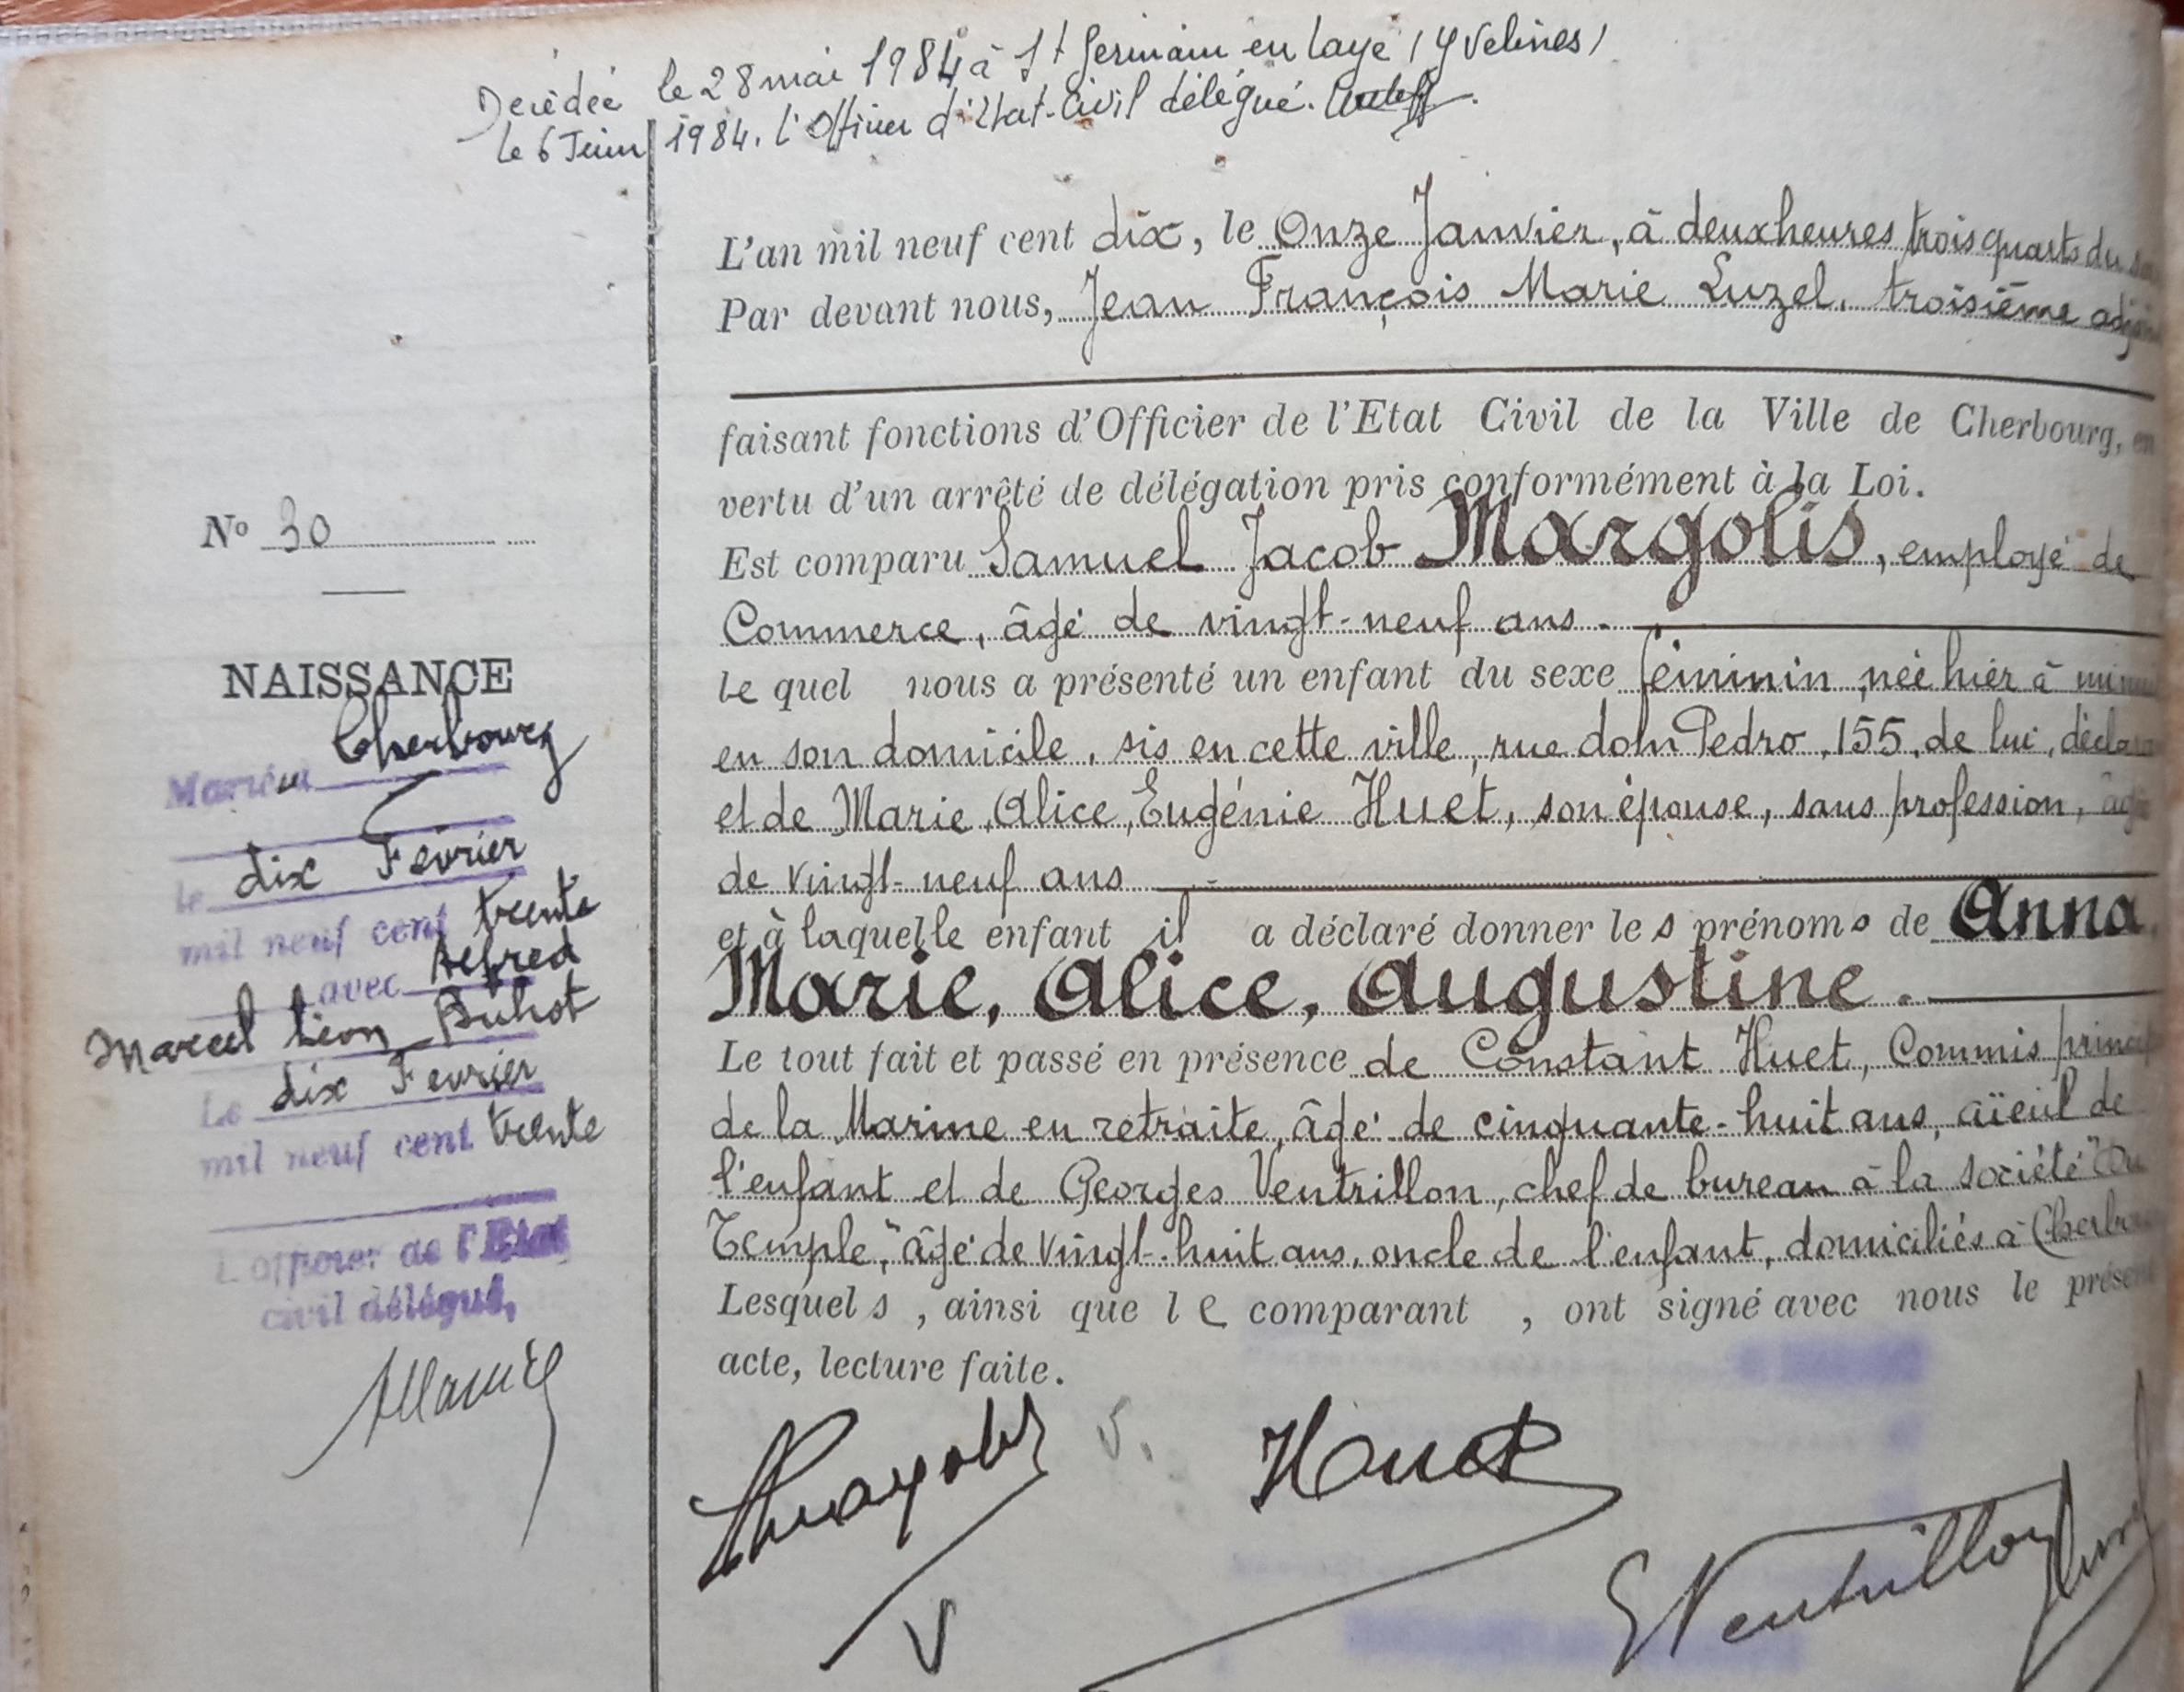 Décédée le 28 mai 1984 à St Germain en Laye (Yvelines)
le 6 Juin 1984. L'Officier d'Etat-Civil délégué.
L'an mil neuf cent dix, le Onze Janvier, à deux heures trois quarts du
Par devant nous, Jean François Marie Luzel, troisième
faisant fonctions d'Officier de l'Etat Civil de la Ville de Cherbourg, en
vertu d'un arrêté de délégation pris conformément à la Loi.
Est comparu Samuel Jacob Margolis, employé de
Commerce, âgé de vingt-neuf ans.
le quel nous a présenté un enfant du sexe féminin, née hier à
en son domicile, sis en cette ville, rue dom Pedro, 155, de lui,
et de Marie, Alice, Eugénie Huet, son épouse, sans profession,
de vingt-neuf ans
et à laquelle enfant il a déclaré donner les prénoms de Anna,
Marie, Alice, Augustine.
Le tout fait et passé en présence de Constant Huet, Commis
de la Marine en retraite, âgé de cinquante-huit ans, aïeul de
l'enfant et de Georges Ventrillon, chef de bureau à la société "Du
Temple," âgé de vingt-huit ans, oncle de l'enfant, domiciliés à
Lesquels, ainsi que le comparant, ont signé avec nous le
acte, lecture faite.
Huet
Ventrillon
Luzel
N° 30
NAISSANCE
Mariée à Cherbourg
le dix Février
mil neuf cent trente
avec Alfred
Marcel Léon Buhot
Le dix Février
mil neuf cent trente
L'officier de l'Etat
civil délégué,